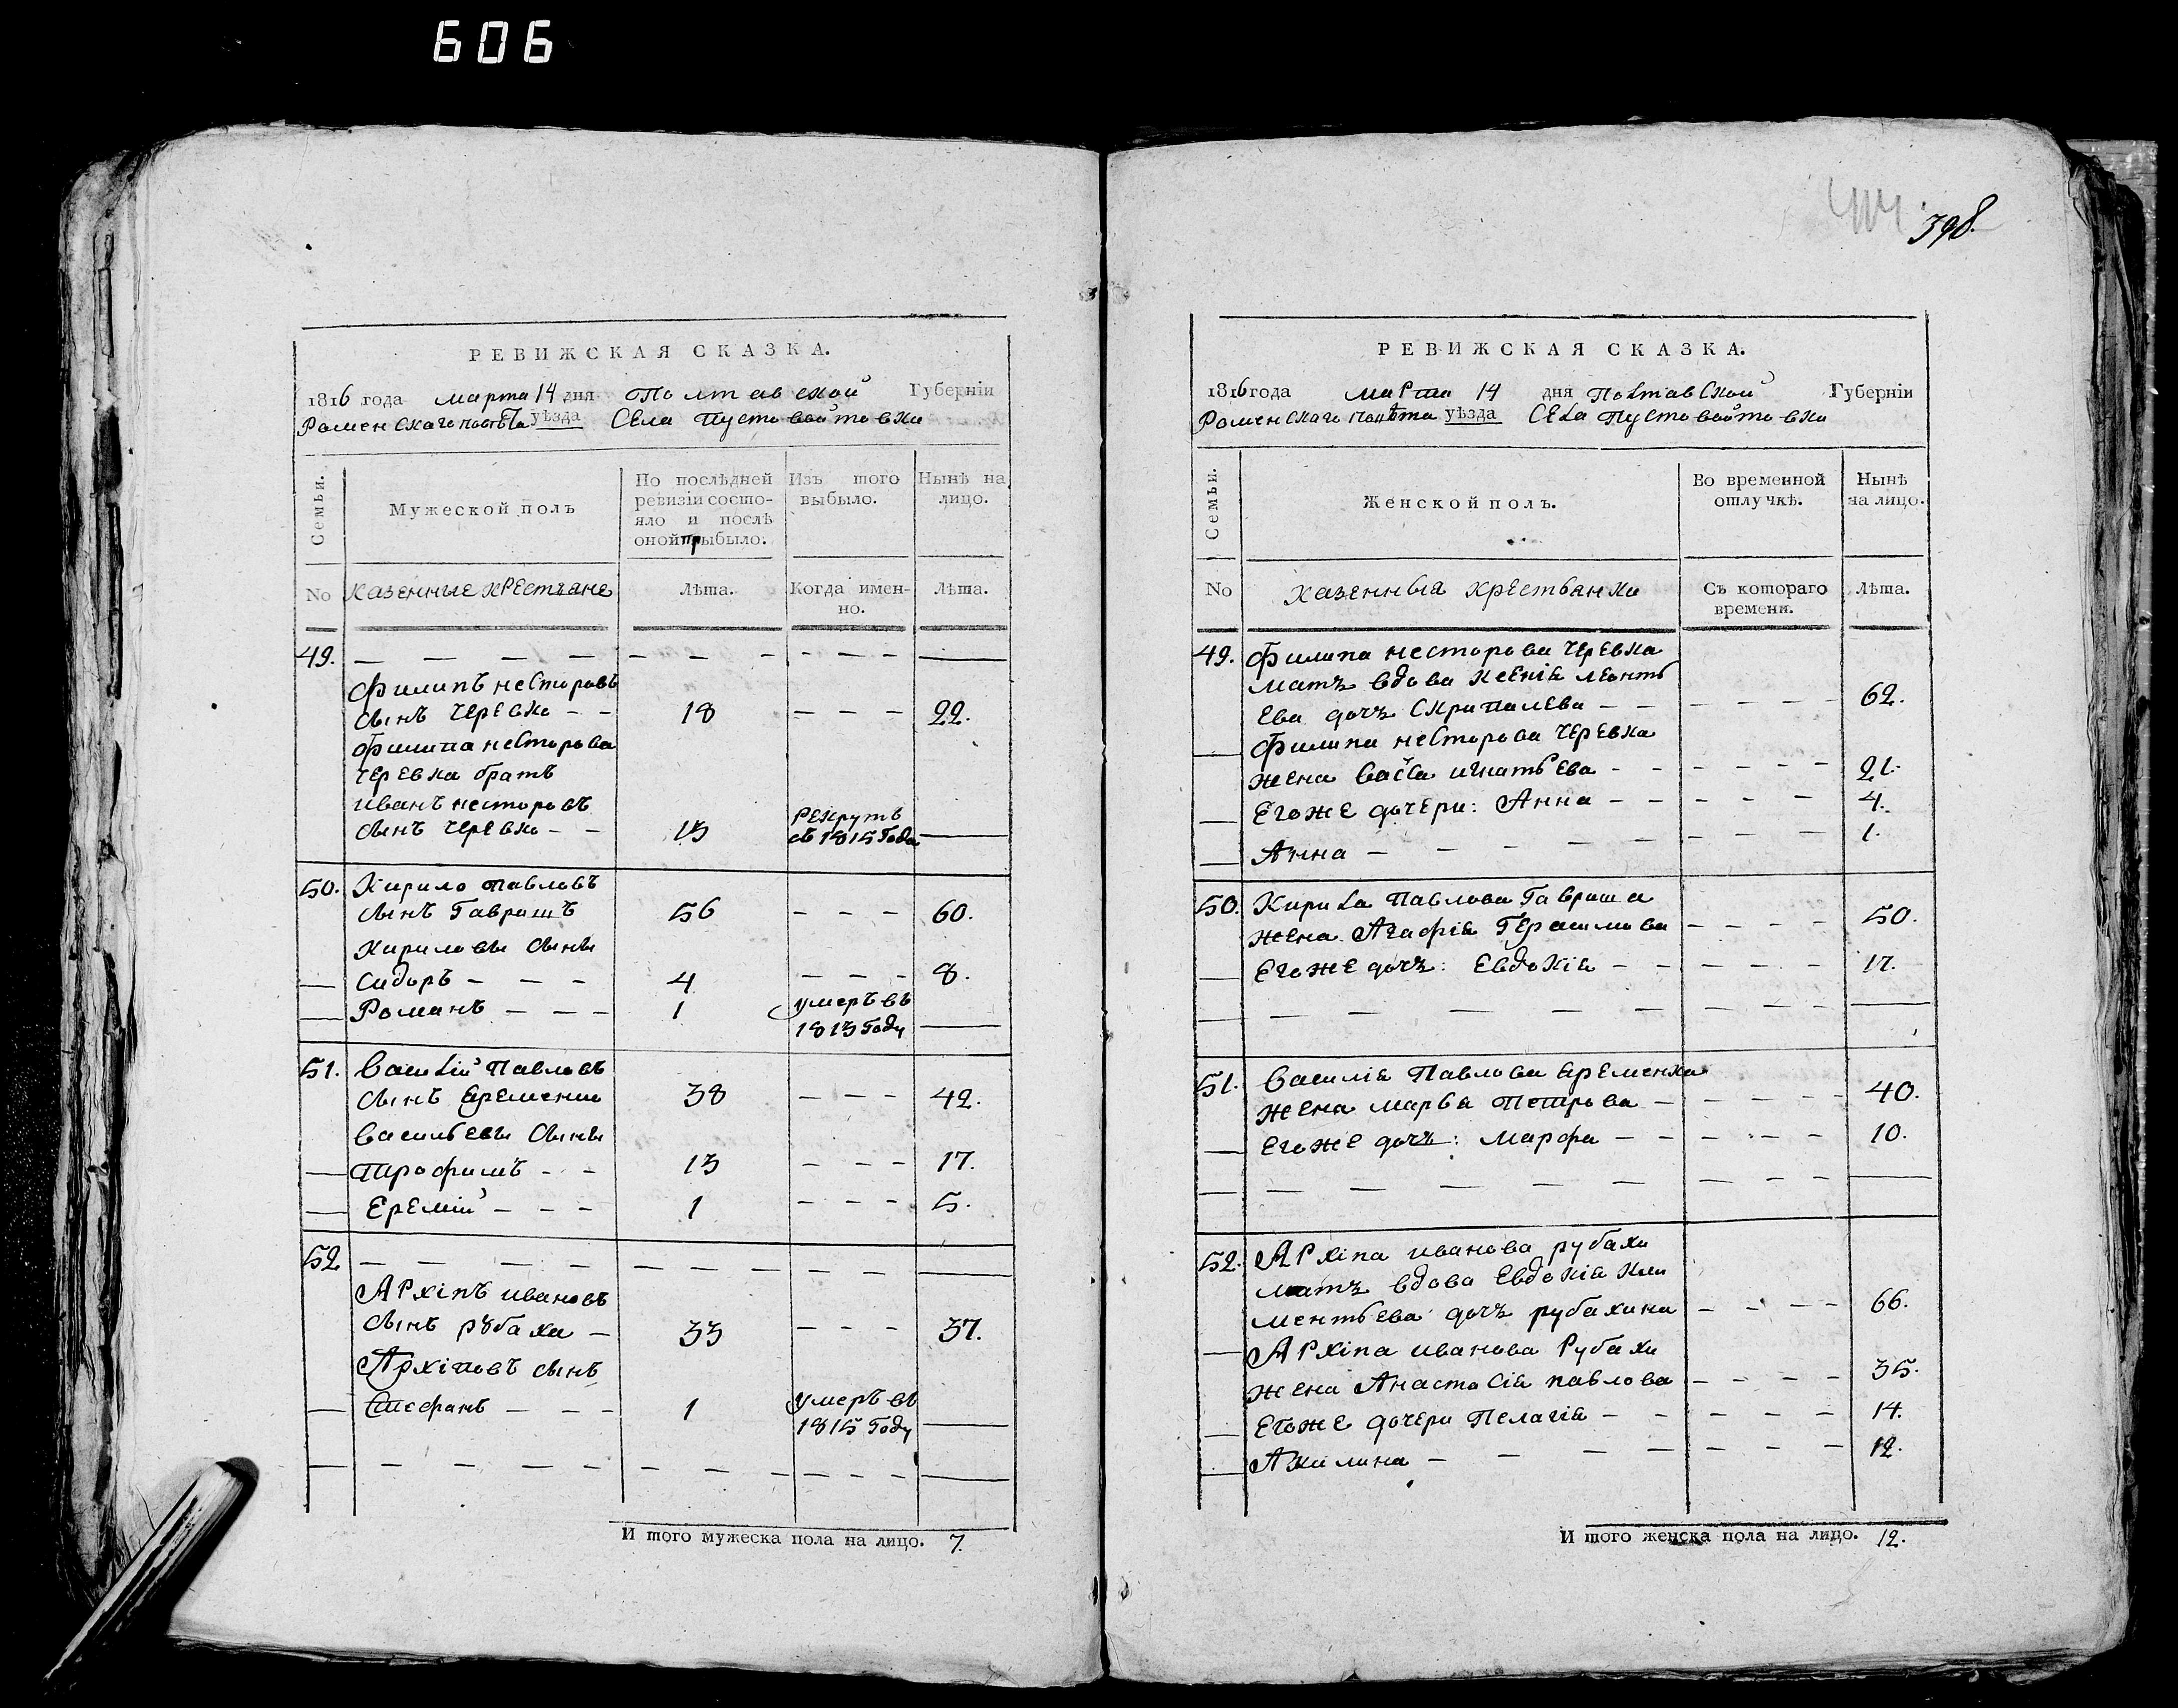 606
РЕВИЖСКАЯ СКАЗКА.
1816 года марта 14 дня Полтавской Губерніи
Роменскаго повѣта уѣзда Села Пустовойтовки
Семьи.
Мужеской полъ
По послѣдней ревизіи состояло и послѣ оной прибыло.
Изъ того выбыло.
Нынѣ на лицо.
No
казенные крестьяне
Лѣта.
Когда именно.
Лѣта.
49. — — — — — — — — — —
Филипъ несторовъ
сынъ черевко – – 18 – – – 22.
Филипа несторова
черевка братъ
иванъ несторовъ
сынъ черевко – – 15 рекрутъ
съ 1815 Года —
50. Кирило павловъ
сынъ Гавришъ 56 – – – 60.
Кириловы сыны
— сидоръ – – – 4 – – – 8.
— Романъ – – – 1 умеръ въ
1813 Году —
51. Василій Павловъ
сынъ Еременко 38 – – – 42.
васильевы сыны
— Трофимъ – – 13 – – – 17.
— Еремій – – – 1 – – – 5.
52 — — — — — — — — — —
Архіпъ ивановъ
сынъ рубаха – 33 – – – 37.
Архіповъ сынъ
— Стефанъ – – – 1 умеръ въ
1815 Году —
— – – – – – – – – – – —
И того мужеска пола на лицо. 7.
398.
РЕВИЖСКАЯ СКАЗКА.
1816 года марта 14 дня Полтавской Губерніи
Роменскаго повѣта уѣзда Села Пустовойтовки
Семьи.
Женской полъ.
Во временной отлучкѣ.
Нынѣ на лицо.
No
казенныя крестьянки
Съ котораго времени.
Лѣта.
49. Филипа несторова черевка
мать вдова Ксенія леонть
ева дочь Скрипалева – – – – – – 62.
— Филипа несторова черевка
жена васса игнатьева – – – – – – 21.
— Егоже дочери: Анна – – – – – 4.
— Анна – – – – – – – – 1.
50. Кирила Павлова Гавриша
жена Агафія Герасимова – – – – 50.
— Егоже дочь: Евдокія – – – – – 17.
— — — — — — — — — —
51. Василія Павлова Еременка
жена марья петрова – – – – – 40.
— Егоже дочь: марфа – – – – – 10.
— — — — — — — — — —
52. Архіпа иванова рубахи
мать вдова Евдокія Кли
ментьева дочь рубахина – – – – 66.
— Архіпа иванова Рубахи
жена Анастасія павлова – – – – 35.
— Егоже дочери Пелагія – – – – – 14.
— Акилина – – – – – – – 12.
И того женска пола на лицо. 12.